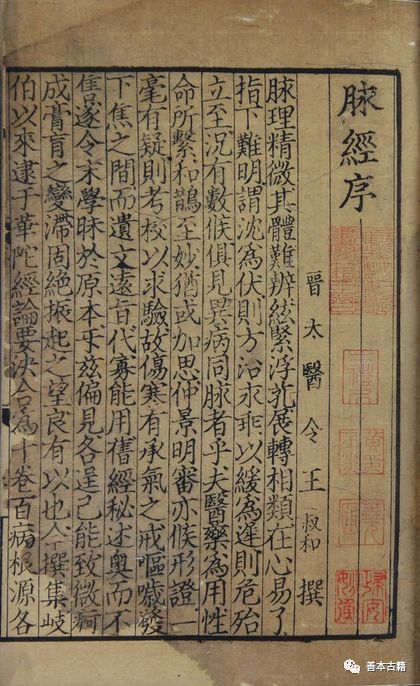 脉經序
晉太醫令王叔和撰
脉理精微其體難辨絃緊浮芤展轉相類在心易了
指下難明謂沈為伏則方治永乖以緩為遲則危殆
立至況有數候俱見異病同脉者乎夫醫藥為用性
命所繫和鵲至妙猶或加思仲景明審亦候形證一
毫有疑則考校以求驗故傷寒有承氣之戒嘔噦發
下焦之間而遺文遠旨代寡能用舊經秘述奥而不
售遂令末學昧於原本斥兹偏見各逞己能致微痾
成膏肓之變滯固絶振起之望良有以也今撰集岐
伯以來逮于華陀經論要决合為十卷百病根源各
善本古籍